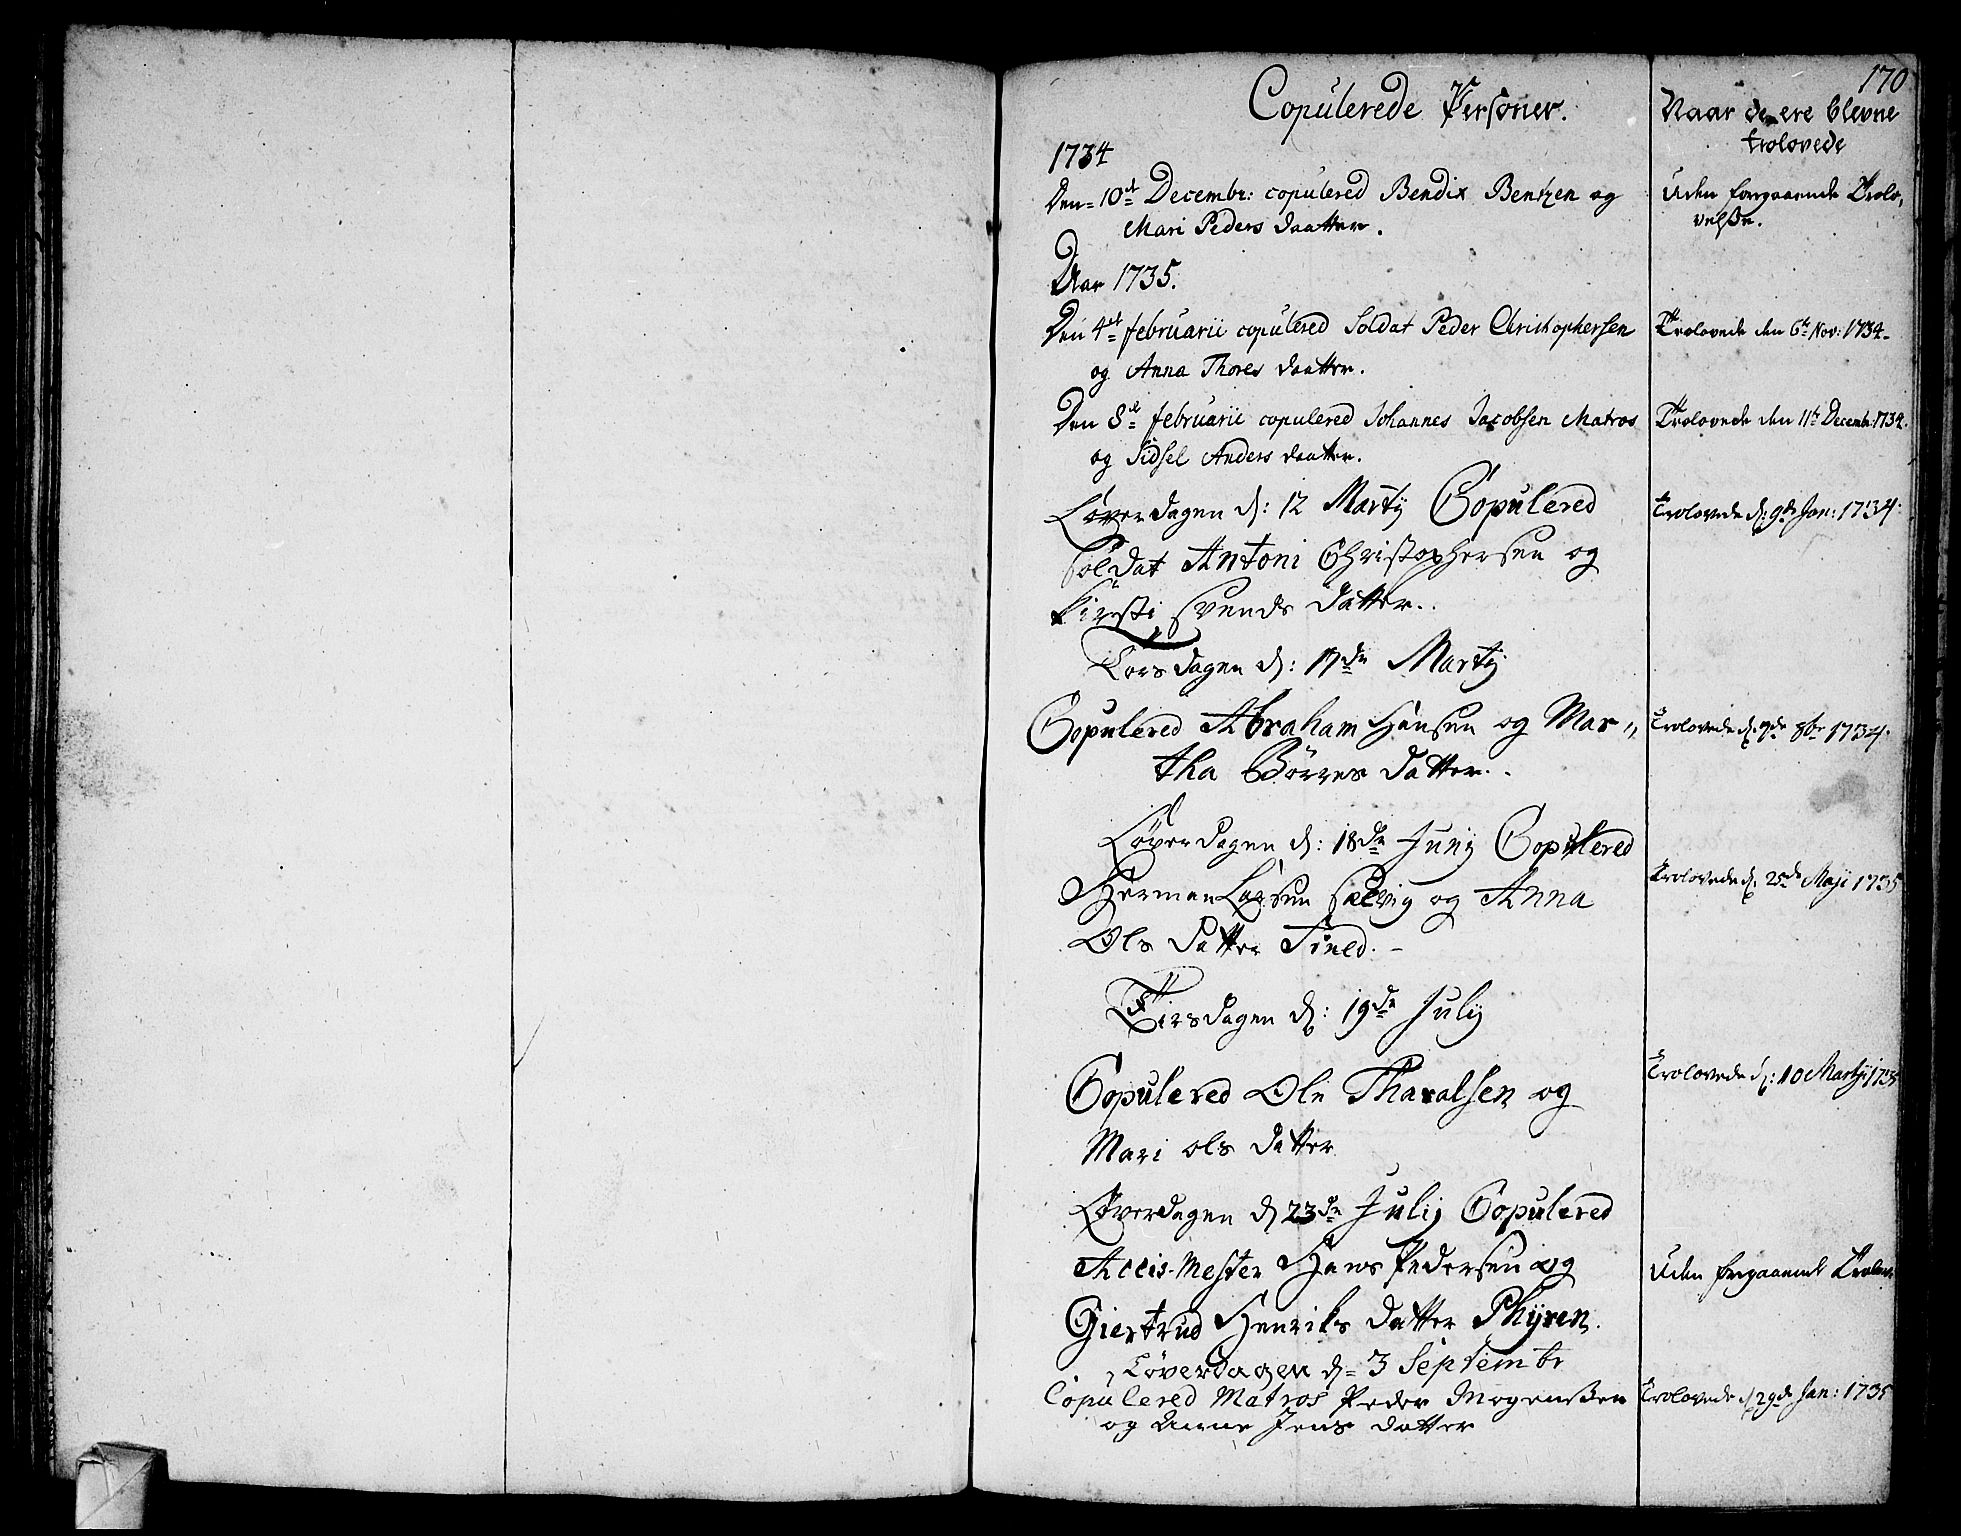 170
Copulerede Personer.
Naar de ere blevne
trolovede
1734
Den 10de Decembr: copulered Bendix Bentzen og
Mari Peders daatter.
Uden forgaaende Trolo,
velsse.
Aar 1735.
Den 4de februarii copulered Soldat Peder Christophersen
og Anna Thores daatter.
Trolovede den 6te Nov: 1734.
Den 8de februarii copulered Johannes Jacobsen Matros
og Sidsel Anders daatter.
Trolovede den 11te Decemb: 1734.
Løverdagen d: 12 Martij Copulered
Soldat Antoni Christophersen og
Kirsti Svends datter.
Trolovede d: 9de Jan: 1734.
Torsdagen d: 17de Martij
Copulered Abraham Hansen og Mar„
tha Börres datter.
Trolovede d: 7de 8br 1734.
Løverdagen d: 18de Junij Copulered
Herman Larsen Sælvig og Anna
Ols datter Tined.
Trolovede d: 25de Maji 1735
Tirsdagen d: 19de Julij
Copulered Ole Tharalsen og
Mari Ols datter
Trolovede d: 10 Martij 1735
Løverdagen d 23de Julij Copulered
Accis-Mester Hans Pedersen og
Giertrud Henriks datter Phÿren.
Uden forgaaende Trolov
Løverdagen d= 3 Septembr
Copulered Matros Peder Mogenssen
og Anne Jens datter
Trolovede d 29de Jan: 1735